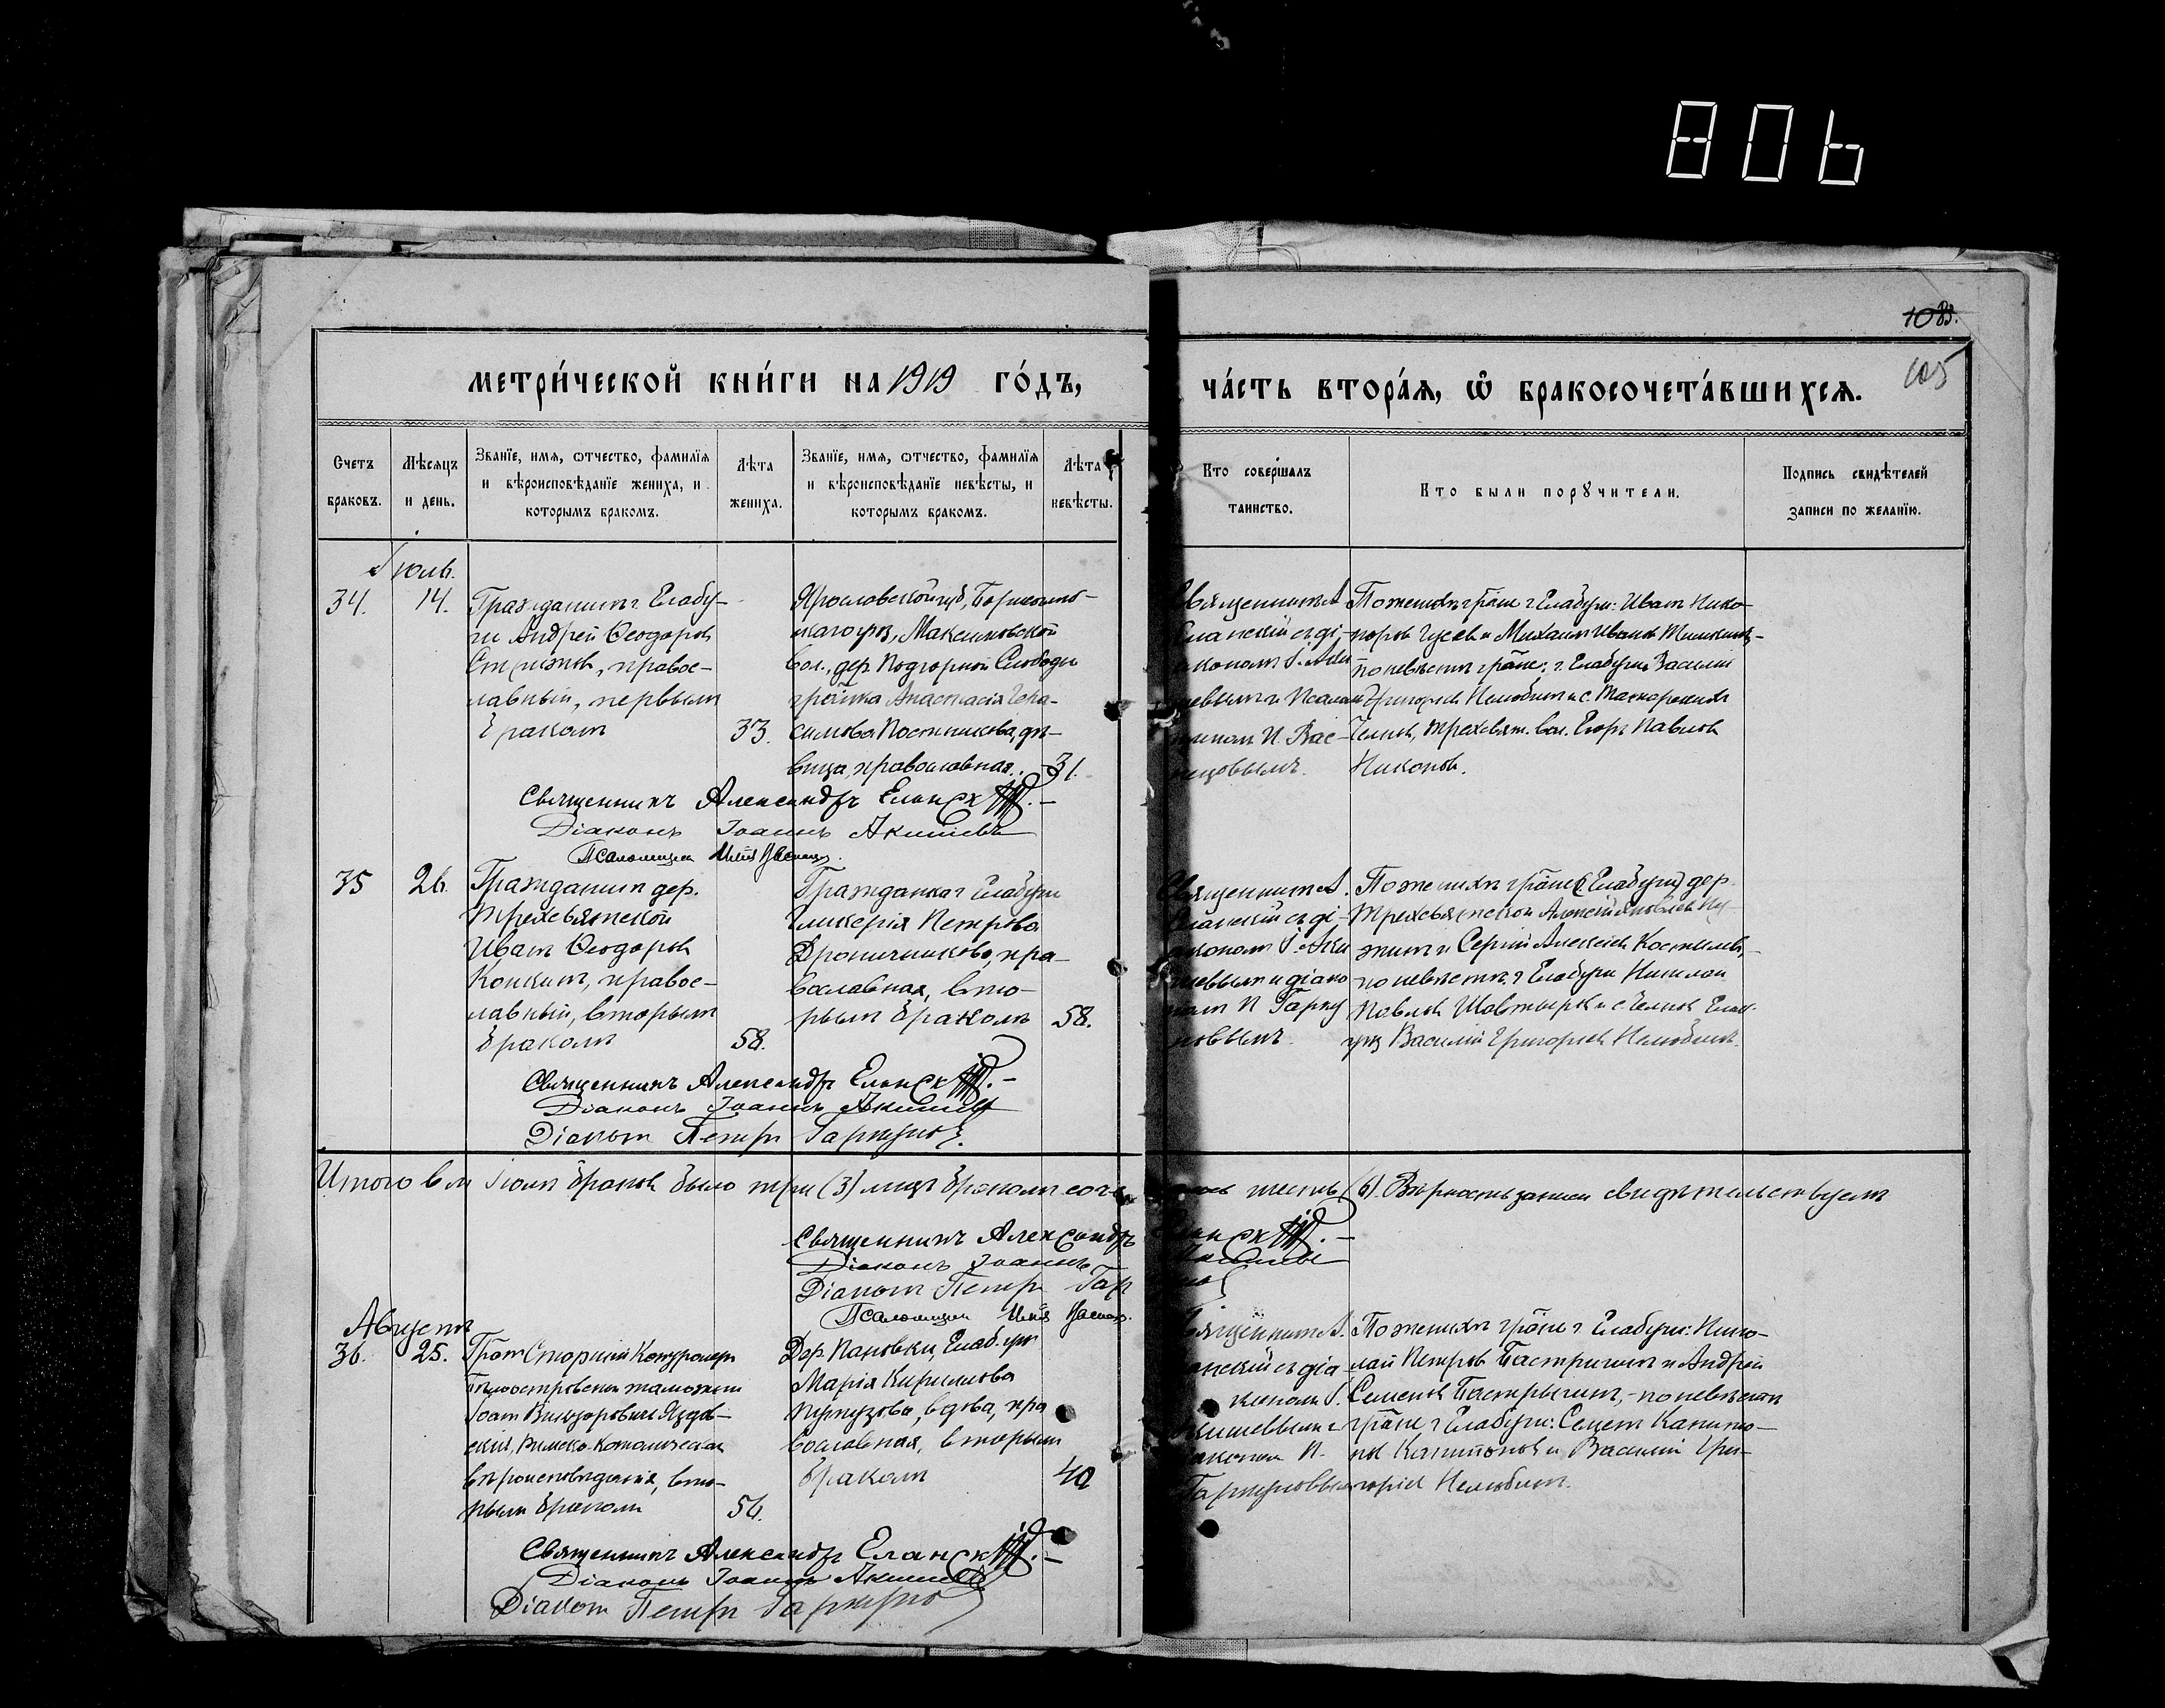 806
1083.
105
МЕТРИ́ЧЕСКОЙ КНИ́ГИ НА 1919 ГО́ДЪ,
ЧА́СТЬ ВТОРА́Я, Ѡ БРАКОСОЧЕТА́ВШИХСЯ.
Счетъ браковъ.
Мѣсяцъ и день.
Званїе, имя, ѡтчество, фамилїя
и вѣроисповѣданїе жениха, и
которымъ бракомъ.
Лѣта жениха.
Званїе, имя, ѡтчество, фамилїя
и вѣроисповѣданїе невѣсты, и
которымъ бракомъ.
Лѣта невѣсты.
Кто совершалъ таинство.
Кто были порꙋчители.
Подпись свидѣтелей
записи по желанїю.
Іюль.
34.
14.
Гражданинъ г Елабу-
ги Андрей Ѳеодоровъ
Стрижовъ, правос-
лавный, первымъ
бракомъ
33.
Ярославской губ,
уѣз, Максимовской
вол., дер. Подгорной Слободы
гр-нка Анастасія Гера-
симова Постникова, дѣ-
вица, православная.
31.
Священникъ А
Еланскій съ ді-
акономъ І. Аки-
шевымъ и Псалом
щикомъ И. Вас-
нецовымъ.
По женихѣ гр-не г Елабуги: Иванъ Нико-
норовъ Гусевъ и Михаилъ Ивановъ
по невѣстѣ гр-не: г. Елабуги Василій
Григорьевъ Нелюбинъ и с.
Челновъ, Трехсвят. вол. Егоръ Павловъ
Никоновъ.
Священникъ Александръ Еланскій. –
Діаконъ Іоаннъ Акишевъ
Псаломщикъ Илія Васнецовъ.
35
26.
Гражданинъ дер.
Трехсвятской
Иванъ Ѳеодоровъ
Конкинъ, правос-
лавный, вторымъ
бракомъ
58.
Гражданка г Елабуги
Гликерія Петрова
пра-
вославная, вто-
рымъ бракомъ
58.
Священникъ А.
Еланскій съ ді-
акономъ І. Аки
шевымъ и діако
номъ П Гарку
новымъ.
По женихѣ гр-не (Елабуги) дер.
Трехсвятской Алексій Яковлевъ
и Сергій Алексіевъ Костылевъ,-
по невѣстѣ: г Елабуги Николай
Павловъ и с Челновъ Елаб.
уѣз Василій Григорьевъ Нелюбинъ.
Священникъ Александръ Еланскій. –
Діаконъ Іоаннъ Акишевъ
Діаконъ Петръ
Итого в м Іюлѣ браковъ было три (3) лицъ бракомъ соче-
лось шесть (6). Вѣрность записи свидѣтельствуемъ
Священникъ Александръ Еланскій. –
Діаконъ Іоаннъ Акишевъ
Діаконъ Петръ
Псаломщикъ Илія Васнец.
Августъ
36.
25.
Гр-нъ Старшій Контролеръ
Бѣлоостровской таможни
Іоаннъ Викторовичъ
скій, Римско-Католическаго
вѣроисповѣданія, вто-
рымъ бракомъ
54.
Дер. Пановки, Елаб. уѣз
Марія Кирилова
вдова, пра
вославная, вторымъ
бракомъ
40
Священникъ А.
Еланскій съ діа
кономъ І.
Акишевымъ и
діакономъ П.
По женихѣ гр-не г Елабуги: Нико-
лай Петровъ Бастригинъ и Андрей
Семеновъ Бастрыгинъ,- по невѣстѣ
гр-не г Елабуги: Семенъ Капито-
новъ Капитоновъ и Василій Гри-
горьевъ Нелюбинъ.
Священникъ Александръ Еланскій. –
Діаконъ Іоаннъ Акишевъ
Діаконъ Петръ